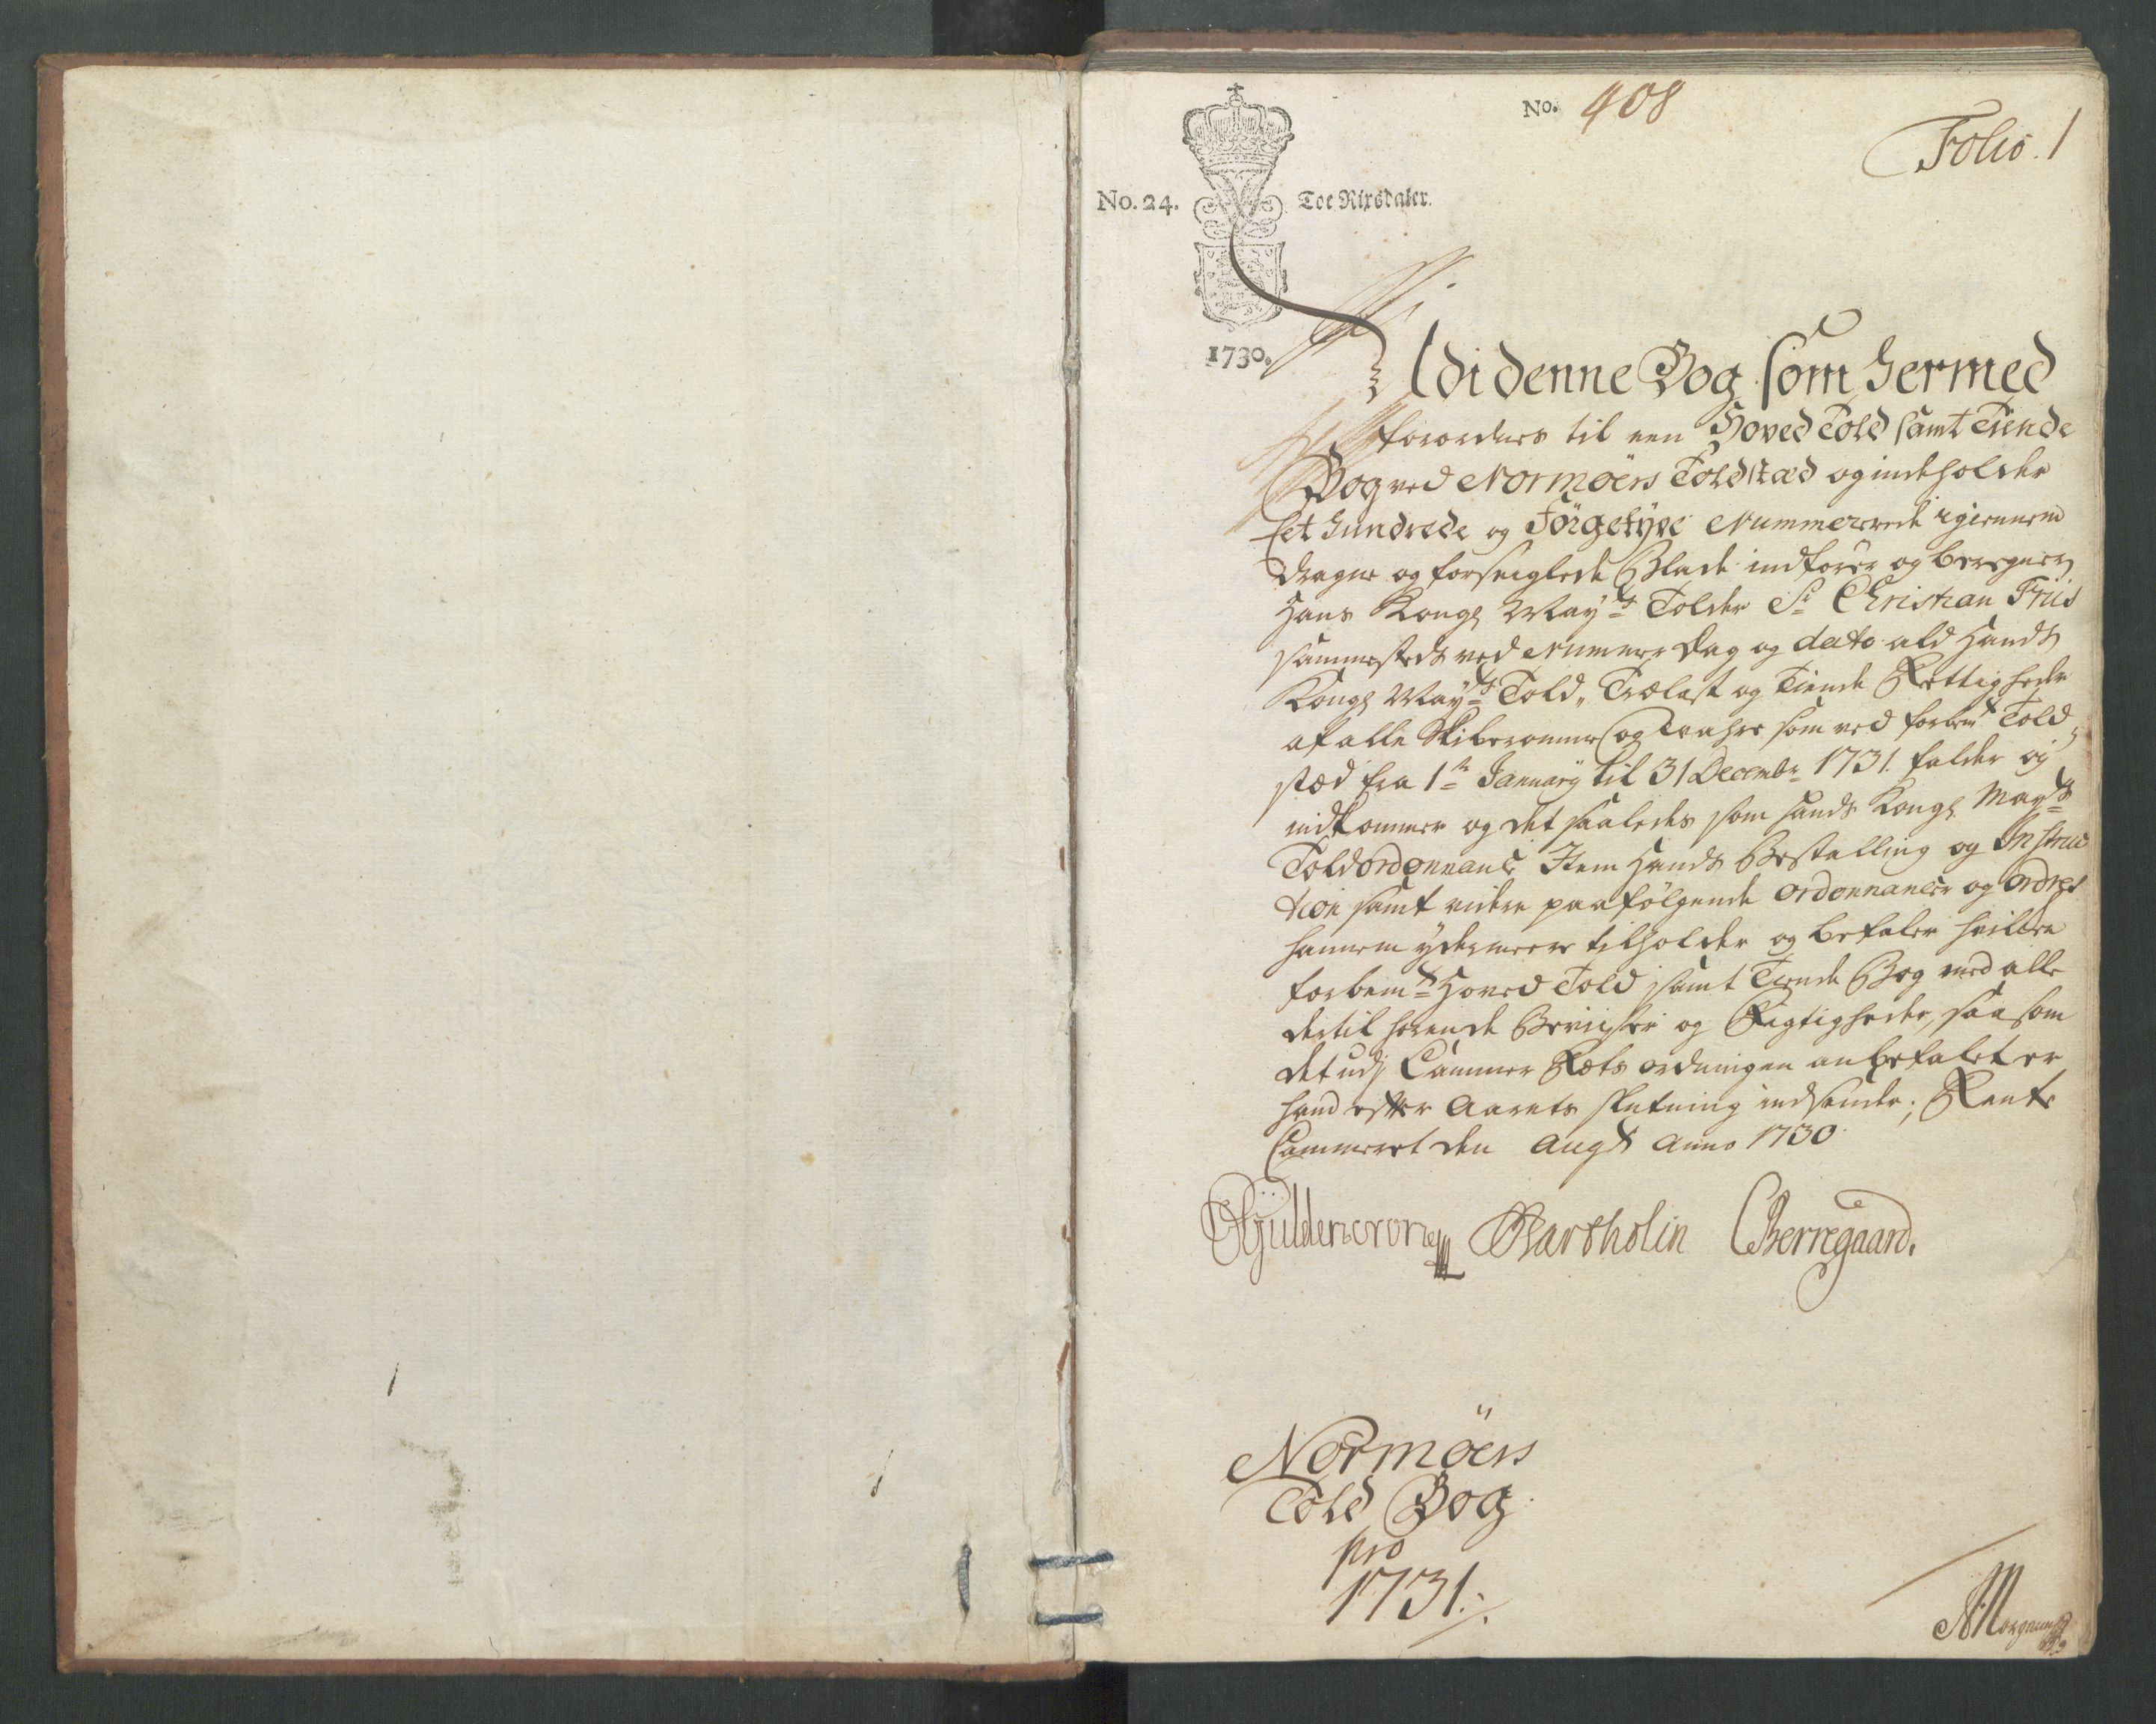 No. 408
Folio. 1
No. 24.
Toe Rixsdaler.
1730.
Udi denne Bog som Hermed
forordnes til een Hoved Told samt Tiende
Bog ved Normøers Toldstæd og indeholder
Eet Hundrede og Førgetyve Nummererede igiennem
dragne og forseiglede Blade indfører og beregner
Hans Kongl May:ts Tolder Sr Christian Friis
sammesteds ved Numer Dag og dato ald Hands
Kongl May:ts Told, Trælast og Tiende Rettigheder
af alle Skiberomme og Wahre som ved forbem:te Told
stæd fra 1:te January til 31 Decembr 1731. falder og
indkommer og det saaledes som hands Kongl May:ts
Toldordonnance Item Hands Bestalling og Instruc
tion samt videre paafølgende ordonnancer og ordres
hannem ydermeere tilholder og befaler hvilken
forbem:te Hoved Told samt Tiende Bog med alle
dertil hørende Beviiser og Rigtigheder, saa som
det udj Cammer Rets ordningen anbefalet er
hand efter Aarets slutning indsender; Rente
Cammeret den Augt Anno 1730
Gyldencrone Bartholin CBerregaard.
Normøers
Told Bog
pro
1731.